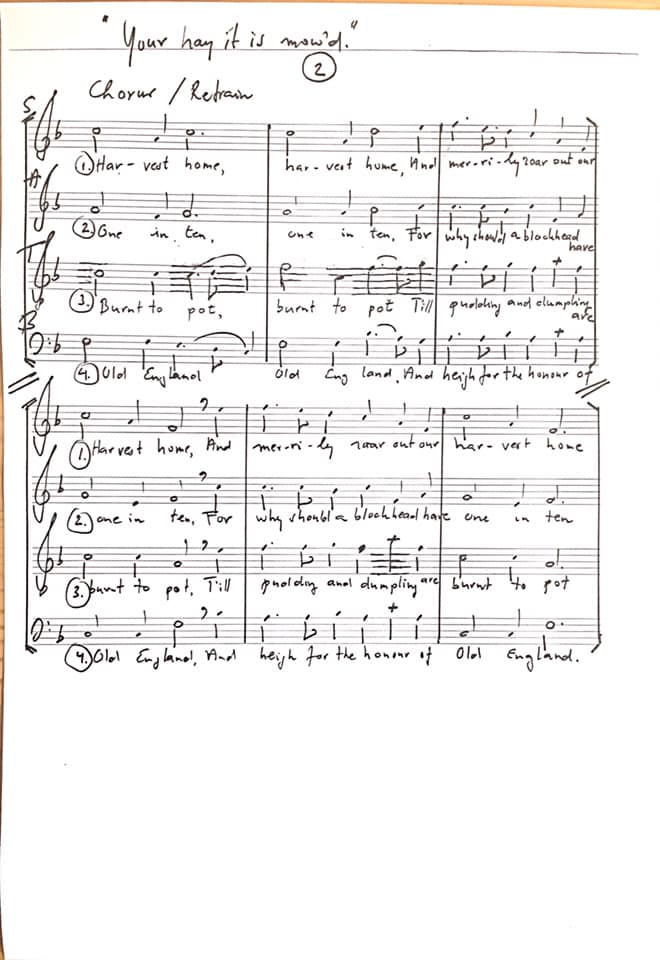 "Your hay it is mow'd."
2
Chorus / Refrain
S
1. Har - vest home, har - vest home, And mer - ri - ly roar out our
A
2. One in ten, one in ten, For why should a blockhead have
T
3. Burnt to pot, burnt to pot Till pudding and dumpling are
B
4. Old England Old Eng land, And heigh for the honour of
1. Harvest home, And mer - ri - ly roar out our har - vest home
2. one in ten, For why should a blockhead have one in ten
3. burnt to pot, Till pudding and dumpling are burnt to pot
4. Old England, And heigh for the honour of Old England.